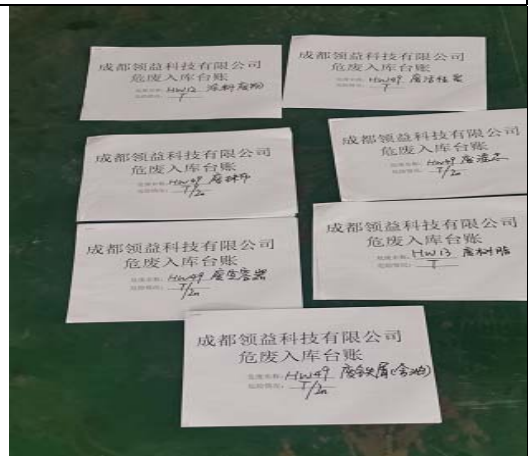 成都领益科技有限公司
危废入库台账
危废名称: HW12 涂料废物
危险情况: T
成都领益科技有限公司
危废入库台账
危废名称: HW49 废活性炭
危险情况: T
成都领益科技有限公司
危废入库台账
危废名称: HW49 废抹布
危险情况: T/In
成都领益科技有限公司
危废入库台账
危废名称: HW49 废滤芯
危险情况: T/In
成都领益科技有限公司
危废入库台账
危废名称: HW49 废空容器
危险情况: T/In
成都领益科技有限公司
危废入库台账
危废名称: HW13 废树脂
危险情况: T
成都领益科技有限公司
危废入库台账
危废名称: HW49 废铁屑(含油)
危险情况: T/In